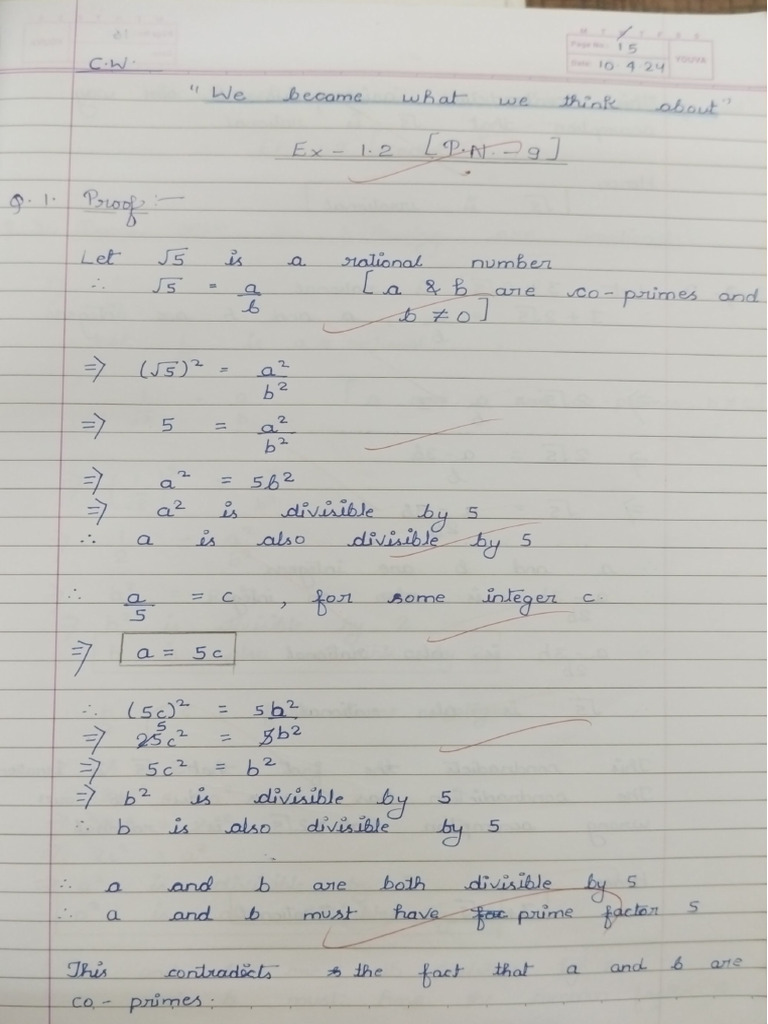 M T W T F S S
Page No.: 15
Date: 10 4 24
YOUVA
C.W.
"We became what we think about"
Ex - 1.2 [P.N. - 9]
Q.1. Proof :-
Let √5 is a rational number
∴ √5 = a/b [a & b are co-primes and
b ≠ 0]
⇒ (√5)² = a²/b²
⇒ 5 = a²/b²
⇒ a² = 5b²
⇒ a² is divisible by 5
∴ a is also divisible by 5
∴ a/5 = c , for some integer c.
⇒ a = 5c
∴ (5c)² = 5b²
⇒ 25c² = 5b²
⇒ 5c² = b²
⇒ b² is divisible by 5
∴ b is also divisible by 5
∴ a and b are both divisible by 5
∴ a and b must have prime factor 5
This contradicts the fact that a and b are
co-primes.